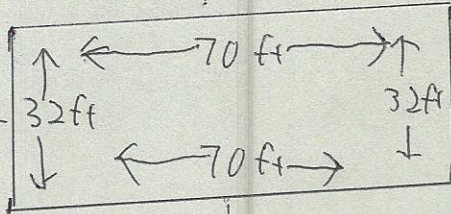 70 ft
32ft 32ft
70 ft